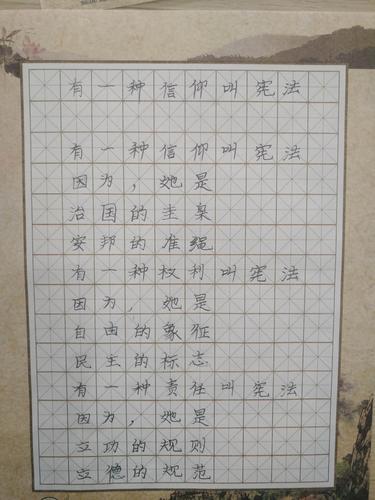 有一种信仰叫宪法
有一种信仰叫宪法
因为，她是
治国的圭臬
安邦的准绳
有一种权利叫宪法
因为，她是
自由的象征
民主的标志
有一种责任叫宪法
因为，她是
立功的规则
立德的规范